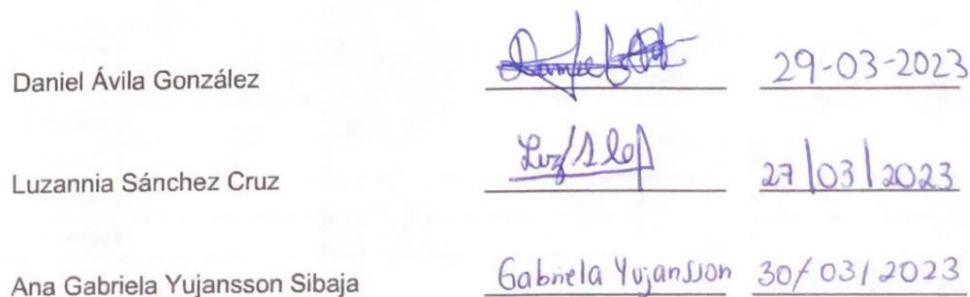 Daniel Ávila González 29-03-2023
Luzannia Sánchez Cruz 27/03/2023
Ana Gabriela Yujansson Sibaja Gabriela Yujansson 30/03/2023